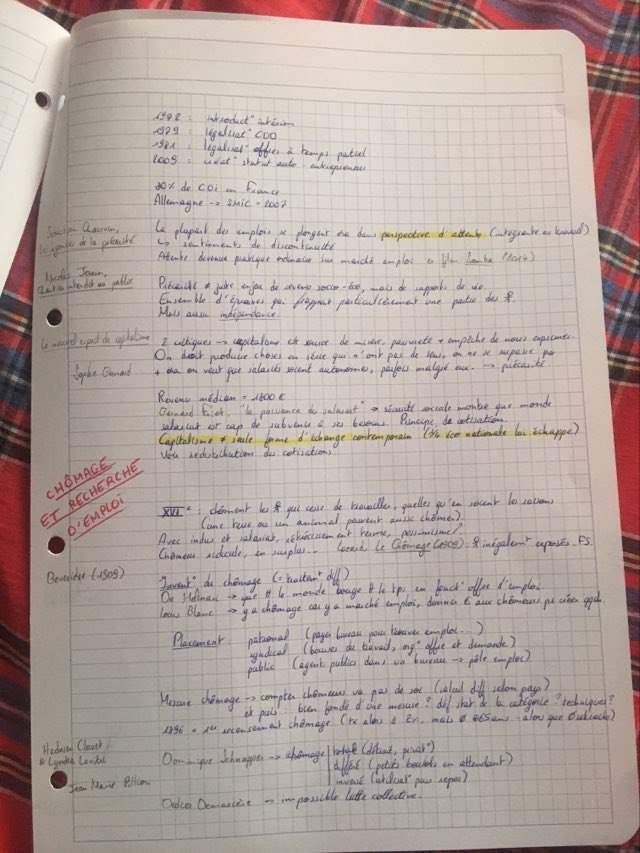 1972 : introduct° intérim
1979 : légalisat° CDD
1981 : légalisat° offres à temps partiel
2009 : créat° statut auto-entrepreneur
20% de CDI en France
Allemagne → SMIC = 2007
Sébastien Chauvin,
Les agences de la précarité
La plupart des emplois se plongent dans perspective d'attente (intégrante au travail)
↳ sentiments de discontinuité
Attente devenue pratique ordinaire sur marché emploi film Samba (2014)
Nicolas Jounin,
Chantier interdit au public
Précarité ≠ juste enjeu de revenu socio-éco, mais de rapports de vie
Ensemble d'épreuves qui frappent particulièrement une partie des
Mais aussi indépendance.
Le nouvel esprit du capitalisme
2 critiques → capitalisme est source de misère, pauvreté + empêche de nous exprimer.
On doit produire choses en série qui n'ont pas de sens, on ne se
Sophie Bernard
+ on veut que salariés soient autonomes, parfois malgré eux. → précarité
Revenu médian = 1800 €
Bernard Friot, "la puissance du salariat" → sécurité sociale montre que monde
salariat est cap de subvenir à ses besoins. Principe de cotisation.
Capitalisme ≠ seule forme d'échange contemporain (éco nationale lui échappe)
Voir redistribution des cotisations.
CHÔMAGE
ET RECHERCHE
D'EMPLOI
XVIe : chôment les qui cesse de travailler, quelles qu'en soient les raisons
(une terre ou un animal peuvent aussi chômer).
Avec indus et salariat, rétrécissement terme, pessimisme/?
Chômeur ridicule, en surplus... Lazard, Le Chômage (1909). inégalement exposés.
Beveridge (1909)
Invent° du chômage (= traitant diff)
De → que le monde bouge le tps en fonct° offre d'emploi
Louis Blanc → y a chômage car y a marché emploi, donner € aux chômeurs, créer
Placement : patronal (payer bureau pour trouver emploi...)
syndical (bourses du travail, org° offre et demande)
public (agent publics dans un bureau → pôle emploi)
Mesure chômage → compter chômeurs va pas de soi (calcul diff selon pays)
et puis bien fondé d'une mesure ? déf stat de la catégorie ? techniques ?
1896 = 1er recensement chômage (tx alors à 2%, mais 65 ans alors que
Dominique Schnapper → chômage | total
différé (petits boulots en attendant)
inversé (utilisat° pour repos)
Jean Marie Pillon
Didier Demazière → impossible lutte collective.